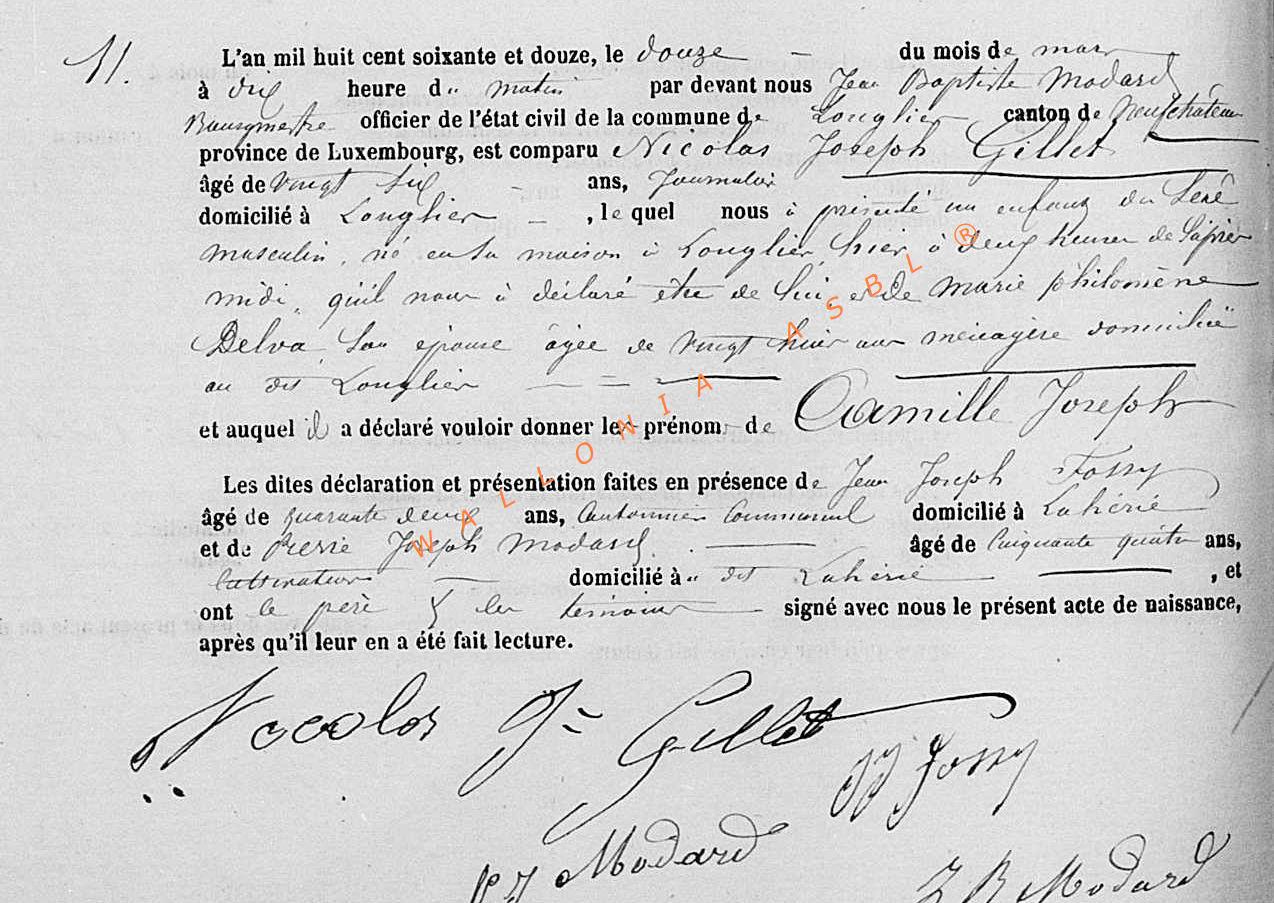 11.
L'an mil huit cent soixante et douze, le douze du mois de mars
à dix heure du matin par devant nous Jean Baptiste Modard
Bourgmestre officier de l'état civil de la commune de Longlier canton de Neufchâteau
province de Luxembourg, est comparu Nicolas Joseph Gillet
âgé de vingt six ans, Journalier
domicilié à Longlier , le quel nous à présenté un enfant du Sexe
masculin, né en sa maison à Longlier, hier à deux heures de l'après
midi, qu'il nous à déclaré être de lui et de Marie philomène
Delva, Son épouse âgée de vingt huit ans ménagère domiciliée
au dit Longlier
et auquel il a déclaré vouloir donner les prénoms de Camille Joseph
Les dites déclaration et présentation faites en présence de Jean Joseph Fossy
âgé de quarante deux ans, Cantonnier Communal domicilié à Lahérie
et de Pierre Joseph Modard âgé de Cinquante quatre ans,
Cultivateur domicilié à dit Lahérie , et
ont le père & les témoins signé avec nous le présent acte de naissance,
après qu'il leur en a été fait lecture.
Nocolas Jh Gillet
JJ Fossy
PJ Modard
J B Modard
WALLONIA ASBL ®